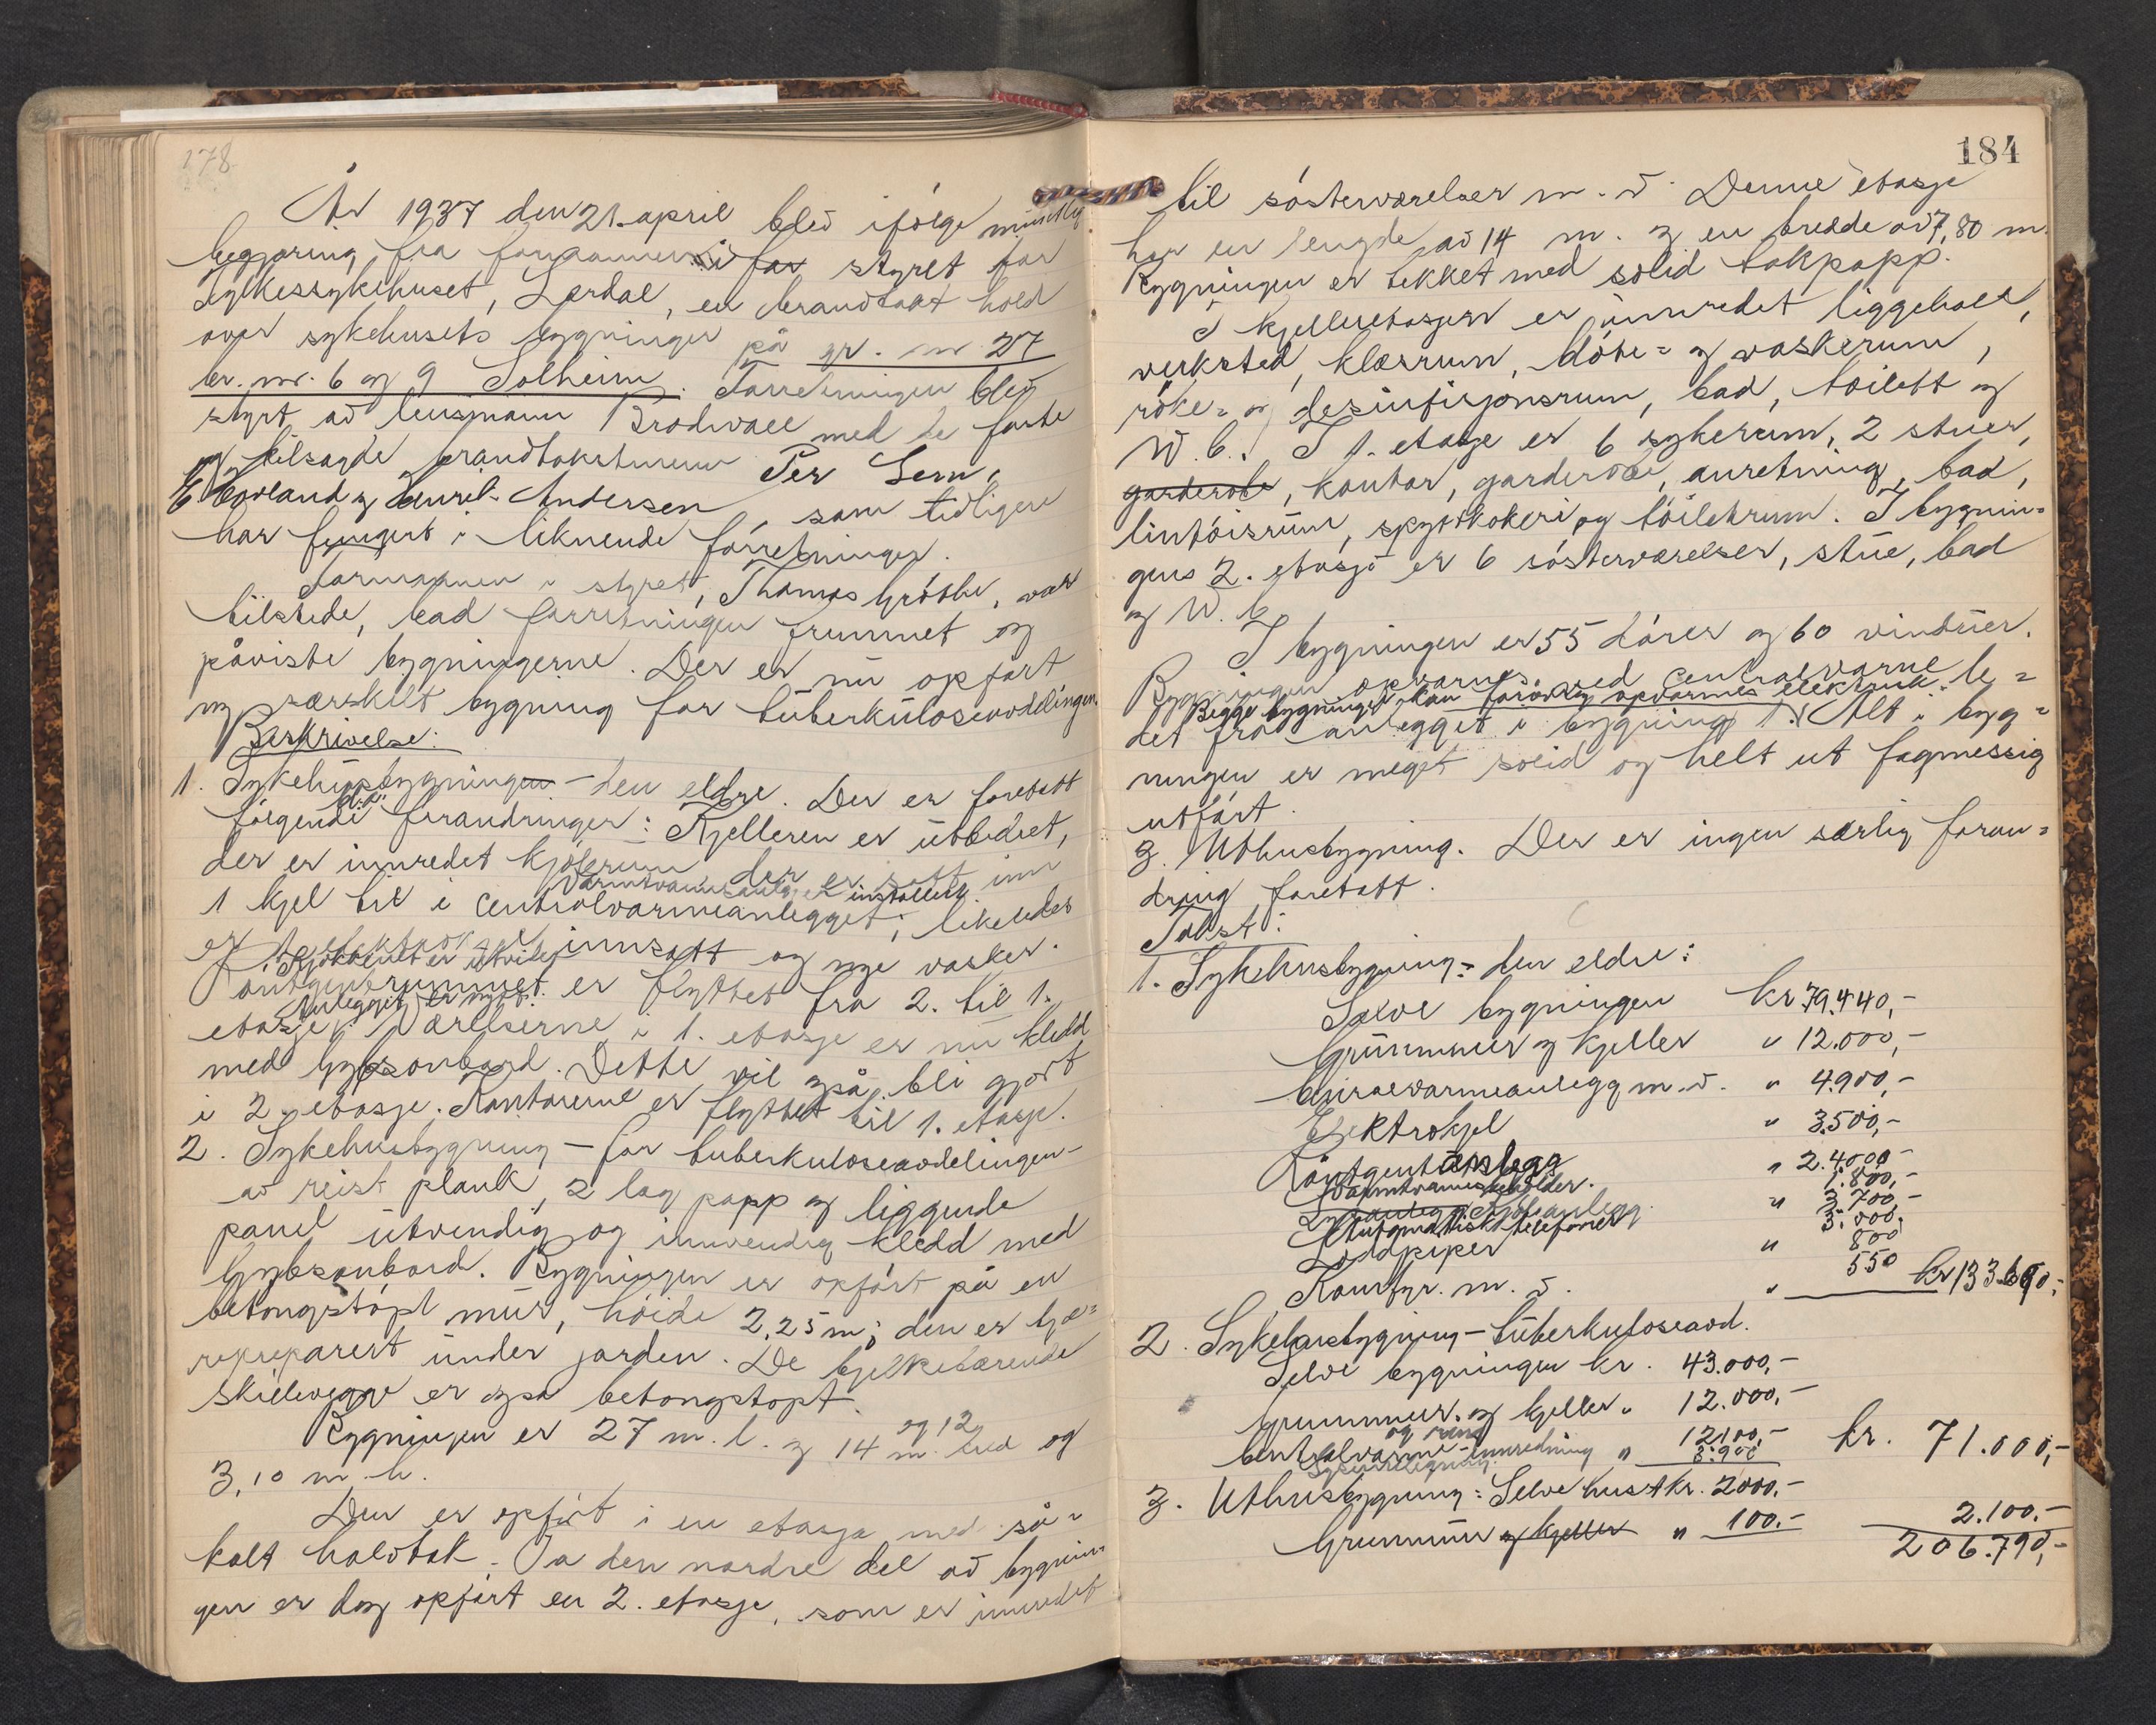 178
År 1937 den 21. april blev ifölge muntlig
begjæring fra formannen i for styret for
Fylkessykehuset, Lærdal, en brandtakst hold
over sykehusets bygninger på gr. nr 27
br. nr. 6 og 9 Solheim. Forretningen blev
styrt av lensmann Brodwall med de faste
og tilsagde brandtakstmenn Per Lem,
og Laurit. Andersen, som tidligere
har fungert i liknende forretninger.
Formannen i styret, Thomas Gröthe, var
tilstede, bad forretningen fremmet og
påviste bygningerne. Der er nu opfört
ny særskilt bygning for tuberkuloseavdelingen.
Beskrivelse:
1. Sykehusbygningen – den eldre. Der er foretatt
fölgende bl.a. forandringer: Kjelleren er utbedret,
der er innredet kjölerum der er satt inn
Varmtvannsanleg er installert.
1 kjel til i centralvarmeanlegget; likeledes
er innsatt og nye vasker.
Kjökkenet er utvidet
Röntgenrummet er flyttet fra 2. til 1.
Anlegget er nytt.
etasje. Værelserne i 1. etasje er nu kledd
med Gypsonbord. Dette vil også bli gjort
i 2. etasje. Kontorerne er flyttet til 1. etasje.
2. Sykehusbygning – for tuberkuloseavdelingen –
av reist plank, 2 lag papp og liggende
panel utvendig og innvendig kledd med
Gypsonbord. Bygningen er opfört på en
betongstöpt mur, höide 2,25 m; den er tjæ=
reprepareret under jorden. De bjelkebærende
skillevegge er også betongstöpt.
Bygningen er 27 m. l. og 14 og 12 m. bred og
3,10 m. h.
Den er opfört i en etasje med så=
kalt halvtak. På den nordre del av bygnin=
gen er dog opfört en 2. etasje, som er innredet
184
til sösterværelser m. v. Denne etasje
har en lengde av 14 m. og en bredde av 7,80 m.
Bygningen er tekket med solid takpapp.
I kjelleretasjen er innredet liggehall,
verksted, klærrum, döbe= og vaskerum,
röke= og desinfisjonsrum, bad, toilett og
W. C. I 1. etasje er 6 sykerum, 2 stuer,
garderobe, kontor, garderobe, anretning, bad,
lintöisrum, spyttkokeri og töiletrum. I bygnin=
gens 2. etasje er 6 sösterværelser, stue, bad
og W. C.
I bygningen er 55 dörer og 60 vinduer.
Bygningen opvarmes ved centralvarme le=
Begge bygninger kan forövrig opvarmes elektrisk.
det fra anlegget i bygning 1. Alt i byg=
ningen er meget solid og helt ut fagmessig
utfört.
3. Uthusbygning. Der er ingen særlig foran=
dring foretatt.
Takst:
1. Sykehusbygning – den eldre:
Selve bygningen kr. 79.440,-
Grunnmur og kjeller " 12.000,-
Centralvarmeanlegg m. v. " 4.900,-
Elektrokjel " 3.500,-
Röntgent anlegg " 2.4000 -
Varmtvannsbeholder. 1.800,-
Kjöleanlegg " 3.700 -
Automatisk telefoner 3.000.
Loddpiper " 800
Komfyr. m. v. " 550 kr 133.690,-
2. Sykehusbygning – tuberkuloseavd.
Selve bygningen kr. 43.000,-
Grunnmur og kjeller " 12.000,-
Centralvarme- og innredning " 12100,-
3.900 kr. 71.000,-
3. Uthusbygning: Selve huset kr. 2000,-
Grunnmur og kjeller " 100.- 2.100.-
206.790,-